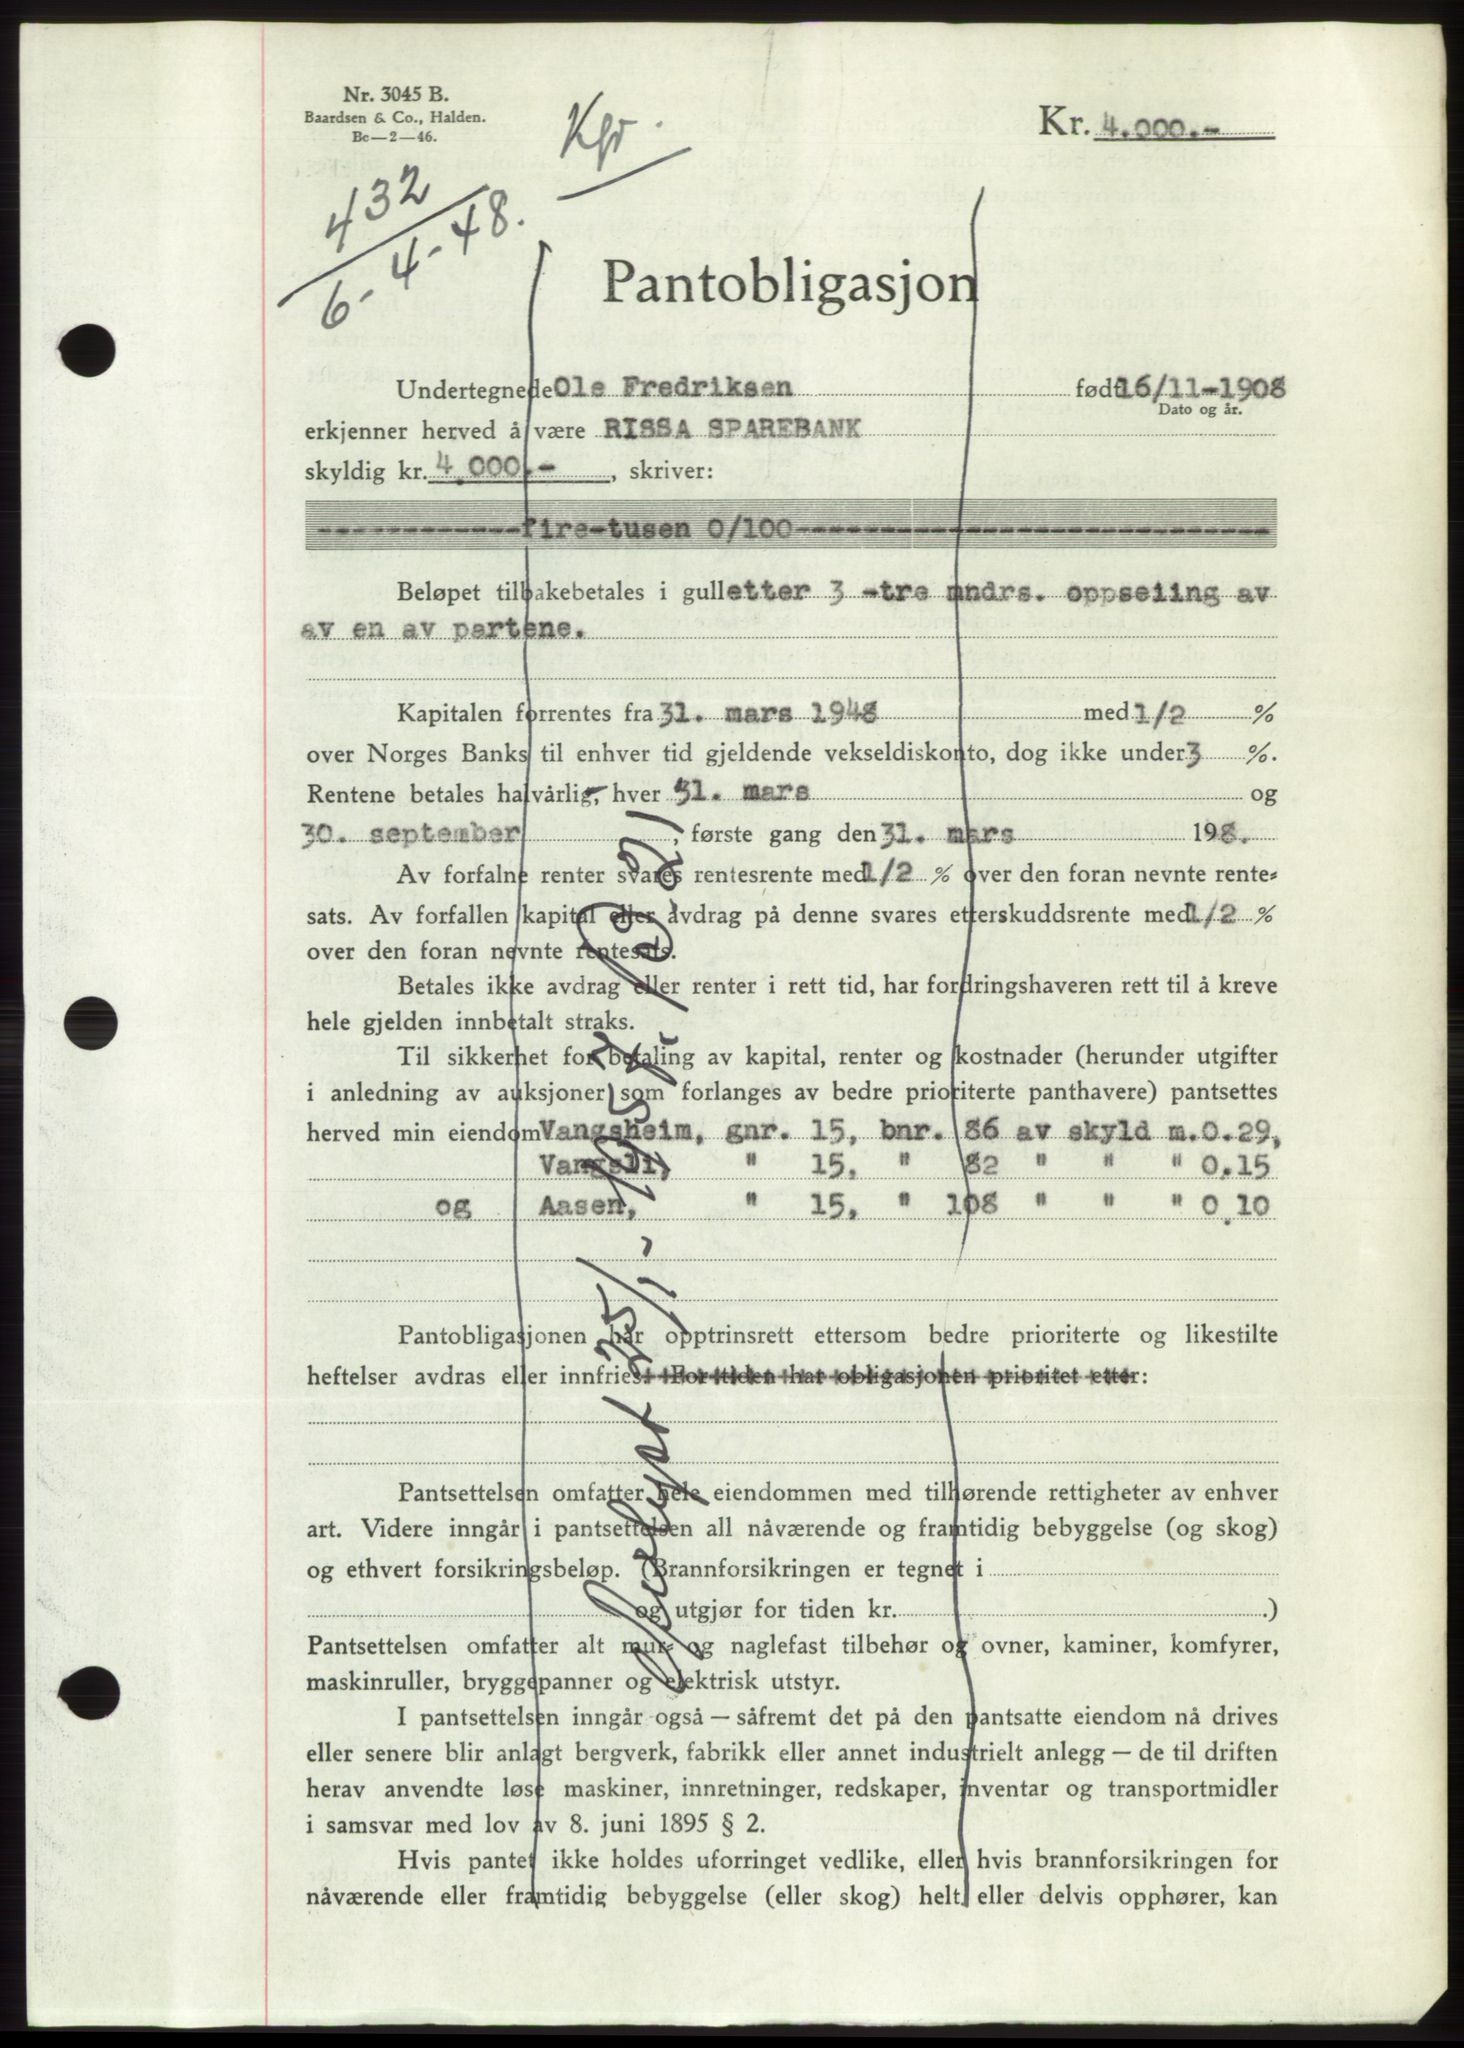 Nr. 3045 B.
Baardsen & Co., Halden.
Be—2—46.
Kr. 4.000.-
432
6-4-48.
Pantobligasjon
Undertegnede Ole Fredriksen født 16/11-1908
Dato og år.
erkjenner herved å være RISSA SPAREBANK
skyldig kr. 4.000.- , skriver:
------------fire-tusen 0/100----------------------------
Beløpet tilbakebetales i gull etter 3 -tre mndrs. oppseiing av
av en av partene.
Kapitalen forrentes fra 31. mars 1948 med 1/2 %
over Norges Banks til enhver tid gjeldende vekseldiskonto, dog ikke under 3 %.
Rentene betales halvårlig, hver 31. mars og
30. september , første gang den 31. mars 198.
Av forfalne renter svares rentesrente med 1/2 % over den foran nevnte rente-
sats. Av forfallen kapital eller avdrag på denne svares etterskuddsrente med 1/2 %
over den foran nevnte rentesats.
Betales ikke avdrag eller renter i rett tid, har fordringshaveren rett til å kreve
hele gjelden innbetalt straks.
Til sikkerhet for betaling av kapital, renter og kostnader (herunder utgifter
i anledning av auksjoner som forlanges av bedre prioriterte panthavere) pantsettes
herved min eiendom Vangsheim, gnr. 15, bnr. 86 av skyld m.0.29,
Vangsli, " 15, " 82 " " " 0.15
og Aasen, " 15, " 108 " " " 0.10
Pantobligasjonen har opptrinsrett ettersom bedre prioriterte og likestilte
heftelser avdras eller innfries. For tiden har obligasjonen prioritet etter:
Pantsettelsen omfatter hele eiendommen med tilhørende rettigheter av enhver
art. Videre inngår i pantsettelsen all nåværende og framtidig bebyggelse (og skog)
og ethvert forsikringsbeløp. (Brannforsikringen er tegnet i
og utgjør for tiden kr. .)
Pantsettelsen omfatter alt mur- og naglefast tilbehør og ovner, kaminer, komfyrer,
maskinruller, bryggepanner og elektrisk utstyr.
I pantsettelsen inngår også — såfremt det på den pantsatte eiendom nå drives
eller senere blir anlagt bergverk, fabrikk eller annet industrielt anlegg — de til driften
herav anvendte løse maskiner, innretninger, redskaper, inventar og transportmidler
i samsvar med lov av 8. juni 1895 § 2.
Hvis pantet ikke holdes uforringet vedlike, eller hvis brannforsikringen for
nåværende eller framtidig bebyggelse (eller skog) helt eller delvis opphører, kan